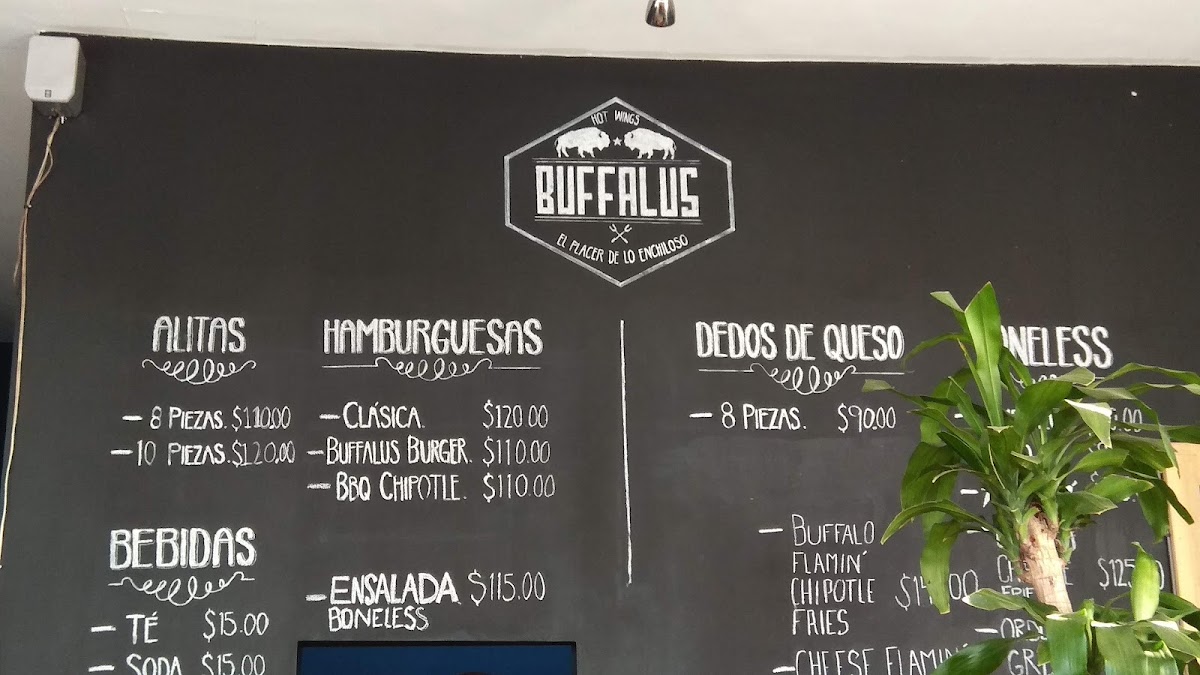 HOT WINGS
BUFFALUS
EL PLACER DE LO ENCHILOSO
ALITAS
- 8 PIEZAS. $110.00
- 10 PIEZAS. $120.00
BEBIDAS
- TÉ $15.00
- SODA $15.00
HAMBURGUESAS
- CLÁSICA. $120.00
- BUFFALUS BURGER. $110.00
- BBQ CHIPOTLE. $110.00
- ENSALADA $115.00
BONELESS
DEDOS DE QUESO
- 8 PIEZAS. $90.00
- BUFFALO
FLAMIN'
CHIPOTLE
FRIES
- CHEESE FLAMIN'